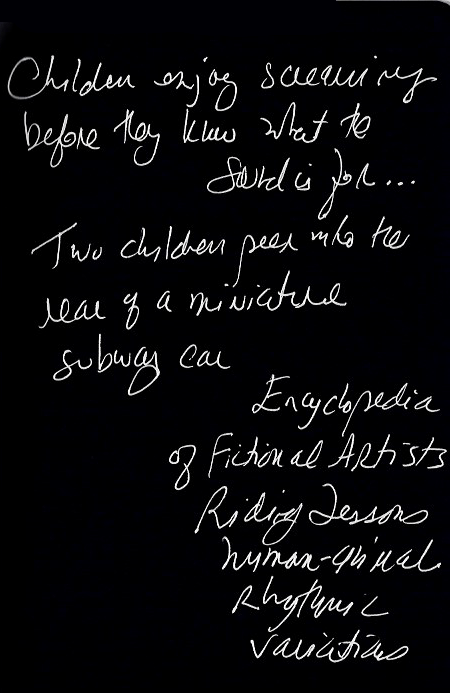 Children enjoy screaming
before they know what the
sound is for...
Two children peer into the
rear of a miniature
subway car
Encyclopedia
of Fictional Artists
Riding Lessons
human-animal
Rhythmic
variations